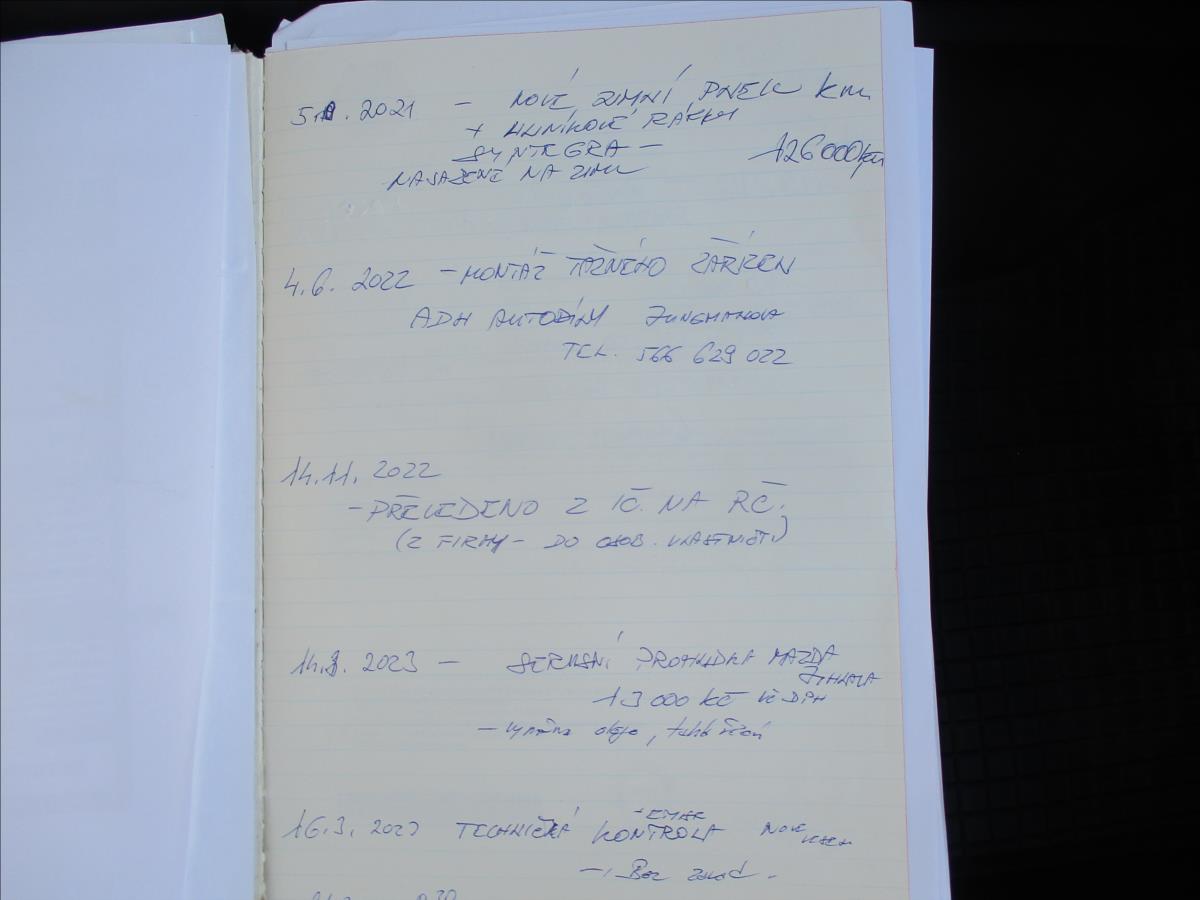 2021 - NOVÉ ZIMNÍ PNEU km
+ HLINÍKOVÉ RÁFKY
SYNTEGRA - 126000km
NASAZENÉ NA ZIMU
4.6. 2022 - MONTÁŽ TAŽNÉHO ZAŘÍZEN
ADH AUTODÍLY JUNGMANOVA
TEL. 566 629 022
14.11. 2022
- PŘEVEDENO Z IČ. NA RČ.
(Z FIRMY - DO OSOB. VLASTNICTV.)
2023 - SERVISNÍ PROHLÍDKA MAZDA
JIHLAVA
13 000 KČ VČ DPH
- výměna oleje,
16.3. 2023 TECHNICKÁ KONTROLA
- Bez závad.